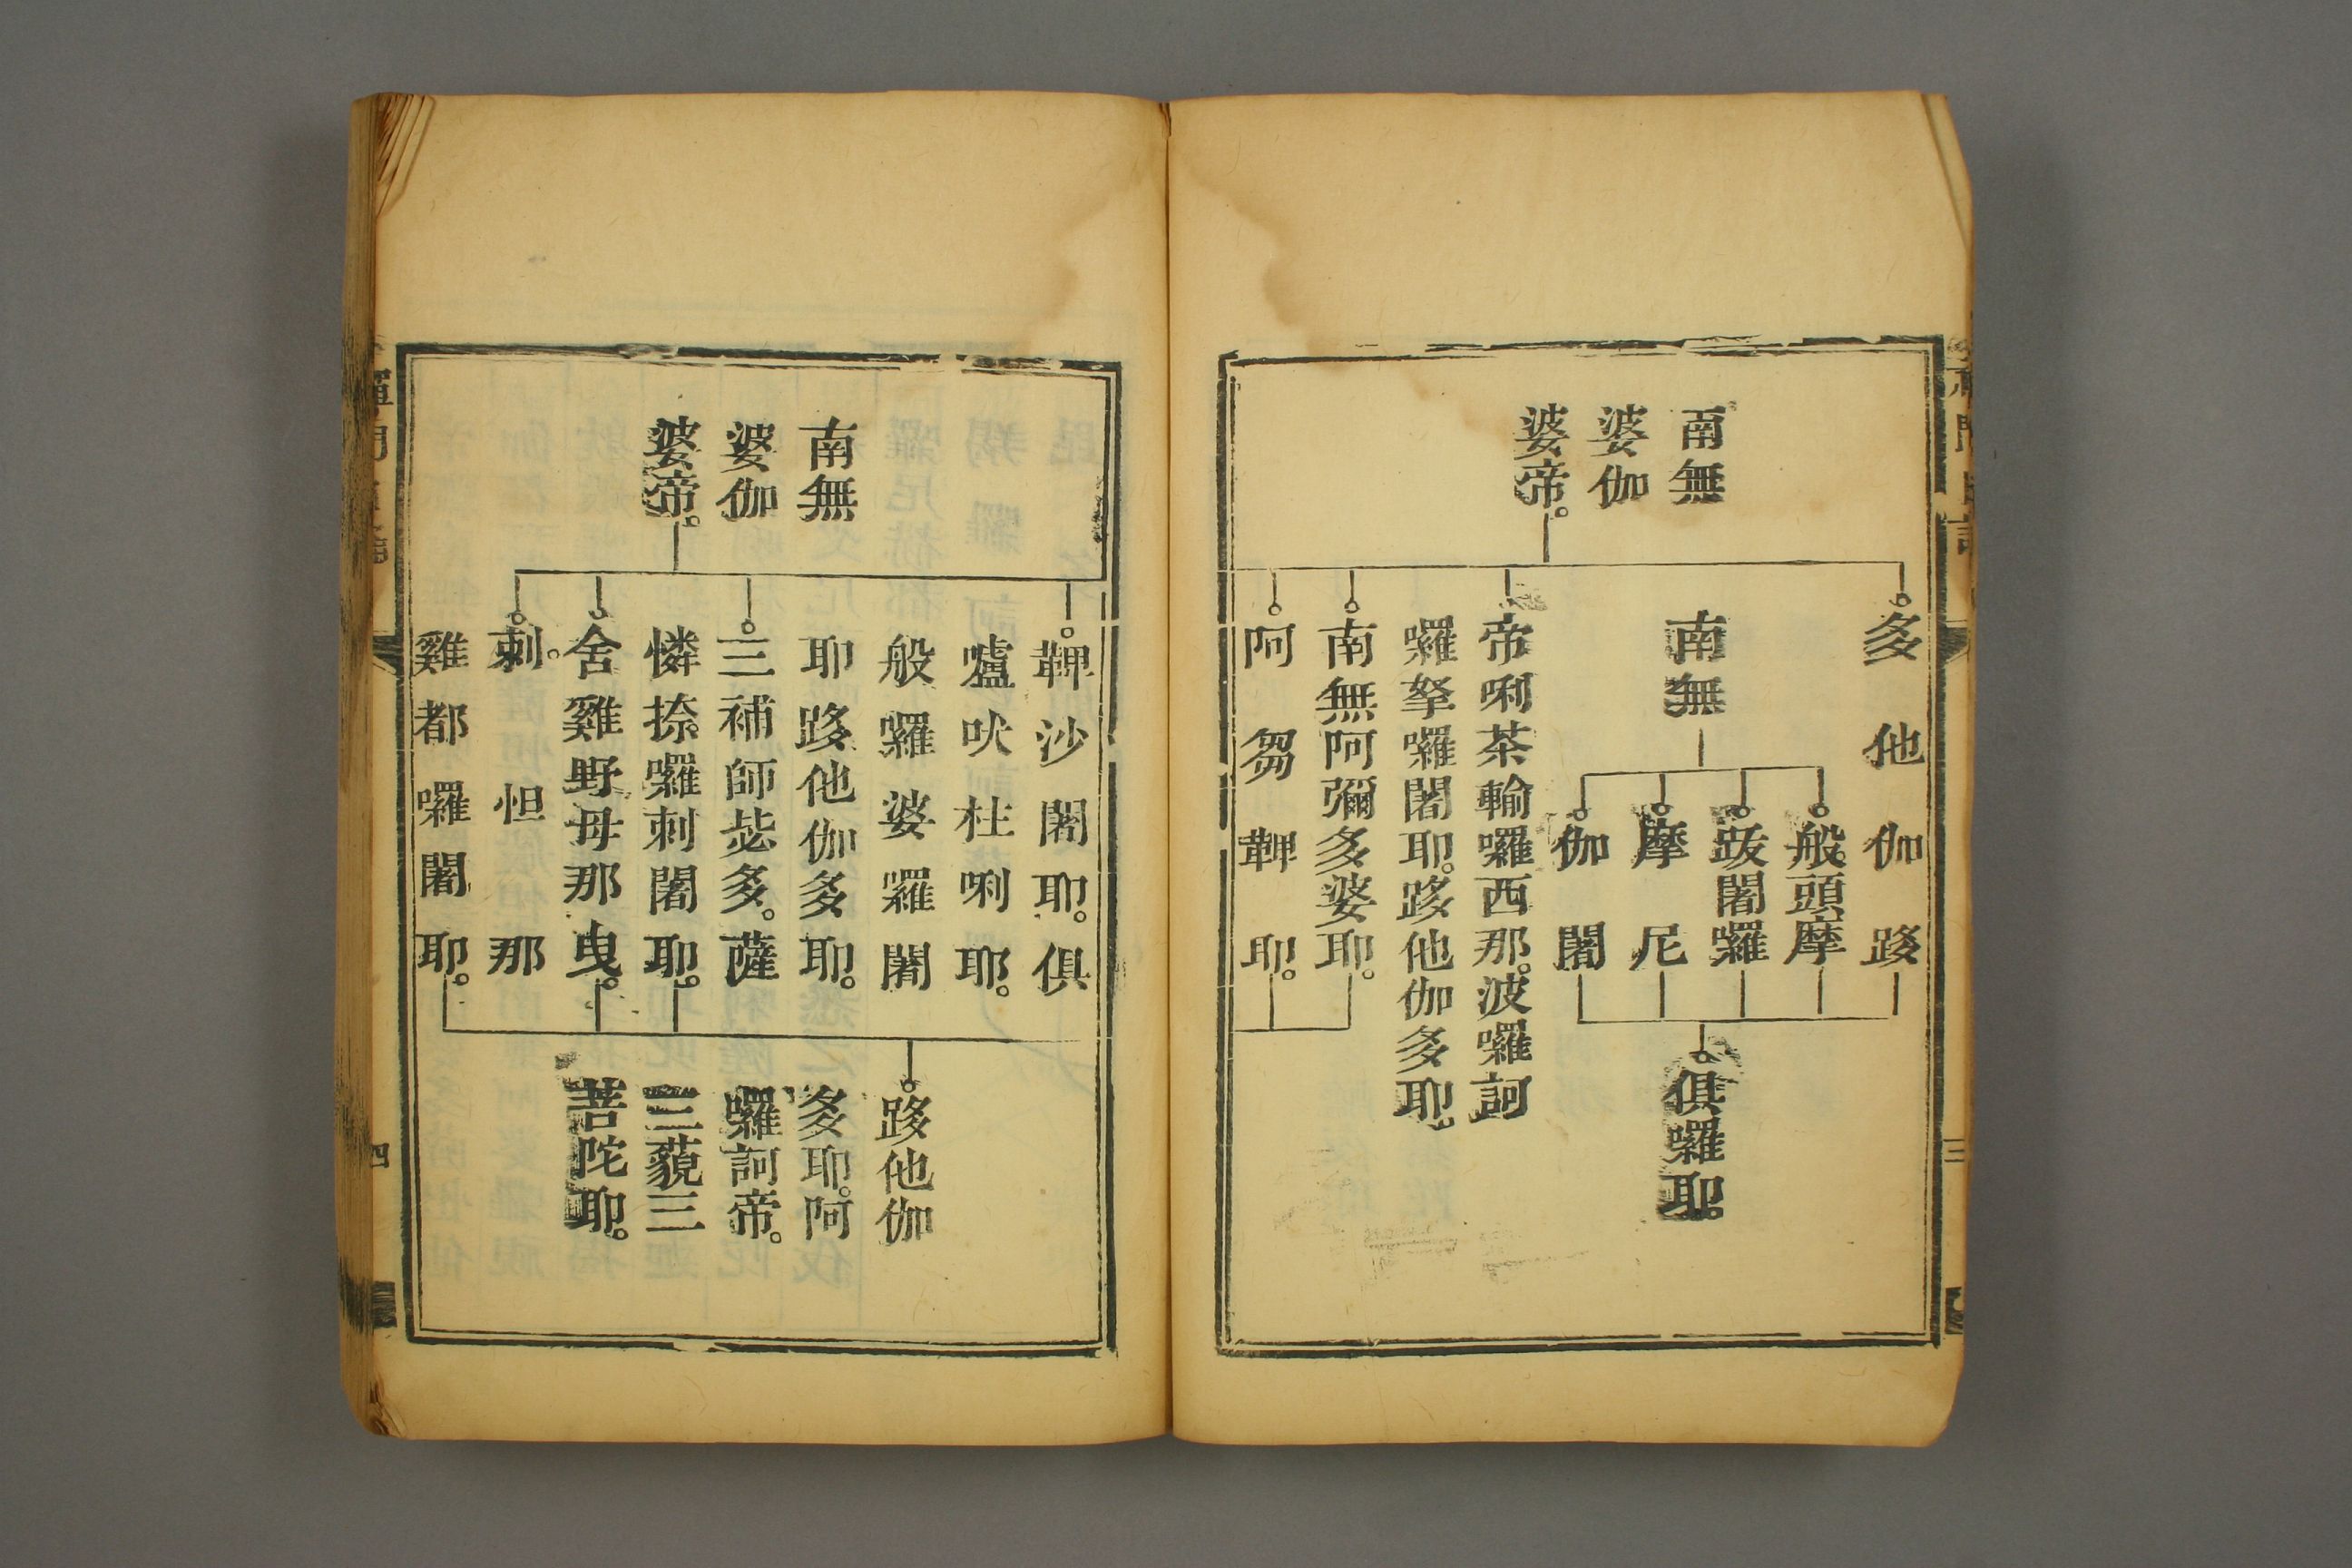 南無
婆伽
婆帝。
多他伽跢
南無
般頭摩
跋闍羅
摩尼
伽闍
俱囉耶。
帝唎茶輸囉西那。波囉訶
囉拏囉闍耶。跢他伽多耶。
南無阿彌多婆耶。
阿芻鞞耶。
三
南無
婆伽
婆帝。
鞞沙闍耶。俱
嚧吠柱唎耶。
般囉婆囉闍
耶跢他伽多耶。
三補師毖多。薩
憐捺囉剌闍耶。
舍雞野母那曳。
剌。怛那
雞都囉闍耶。
跢他伽
多耶。阿
囉訶帝。
三藐三
菩陀耶。
四